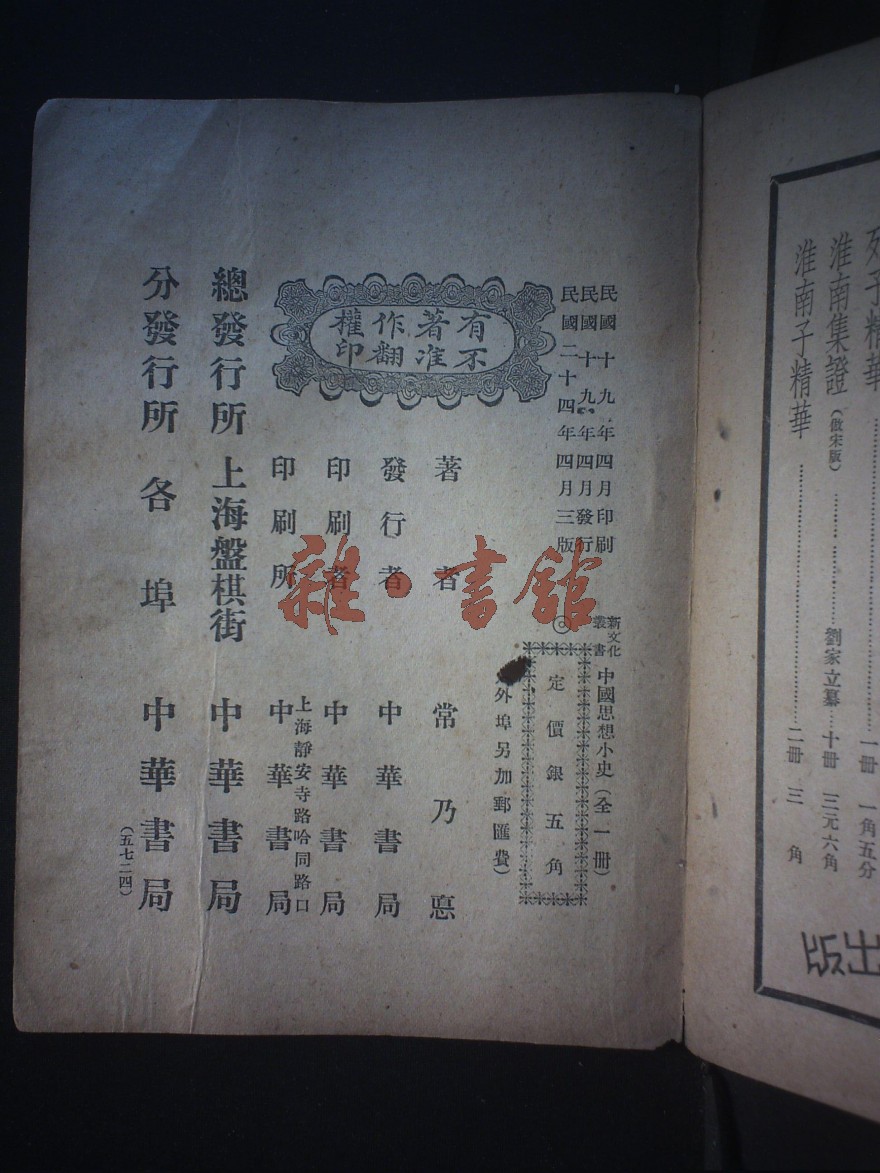 淮南集證(倣宋版)……劉家立纂…十冊 三元六角
淮南子精華……二冊 三 角
出版
民國十九年四月印刷
民國十九年四月發行
民國二十四年四月三版
新文化叢書 中國思想小史(全一冊)
◎ 定價銀五角
外埠另加郵匯費)
有著作權
不准翻印
著者 常乃悳
發行者 中華書局
印刷者 中華書局
上海靜安寺路哈同路口
印刷所 中華書局
總發行所 上海盤棋街 中華書局
分發行所 各埠 中華書局
(五七二四)
雜·書館